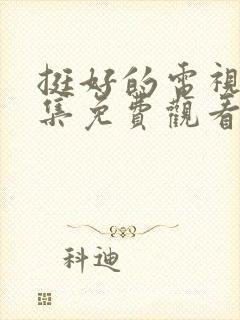 挺好的電視
集免費觀看
科迪